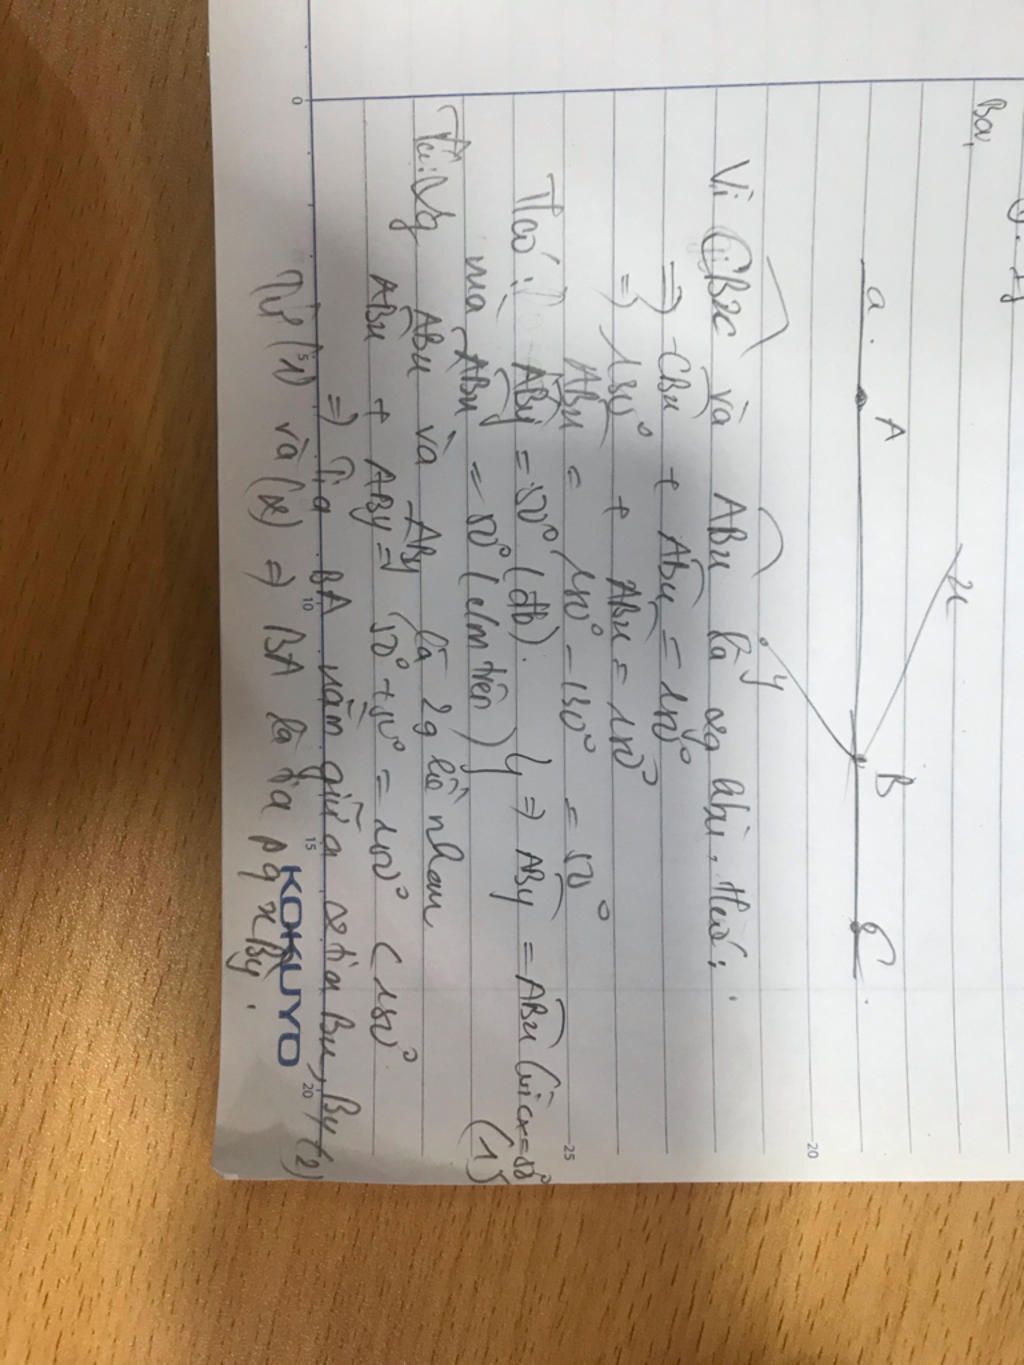 Bài
a)
x
A
B
C
y
Vì CBx và ABx là 2g kbù, ta có:
=> CBx + ABx = 180°
=> 130° + ABx = 180°
ABx = 180° - 130° = 50°
Ta có: ABy = 50° (đb).
mà ABx = 50° (c/m trên) } => ABy = ABx (vì cx = 50°) (1)
ABx và ABy là 2g kề nhau
ABx + ABy = 50° + 50° = 100° < 180°
=> Tia BA nằm giữa 2 tia Bx, By (2)
Từ (1) và (2) => BA là tia pg xBy.
0
5
10
15
20
20
25
KOKUYO